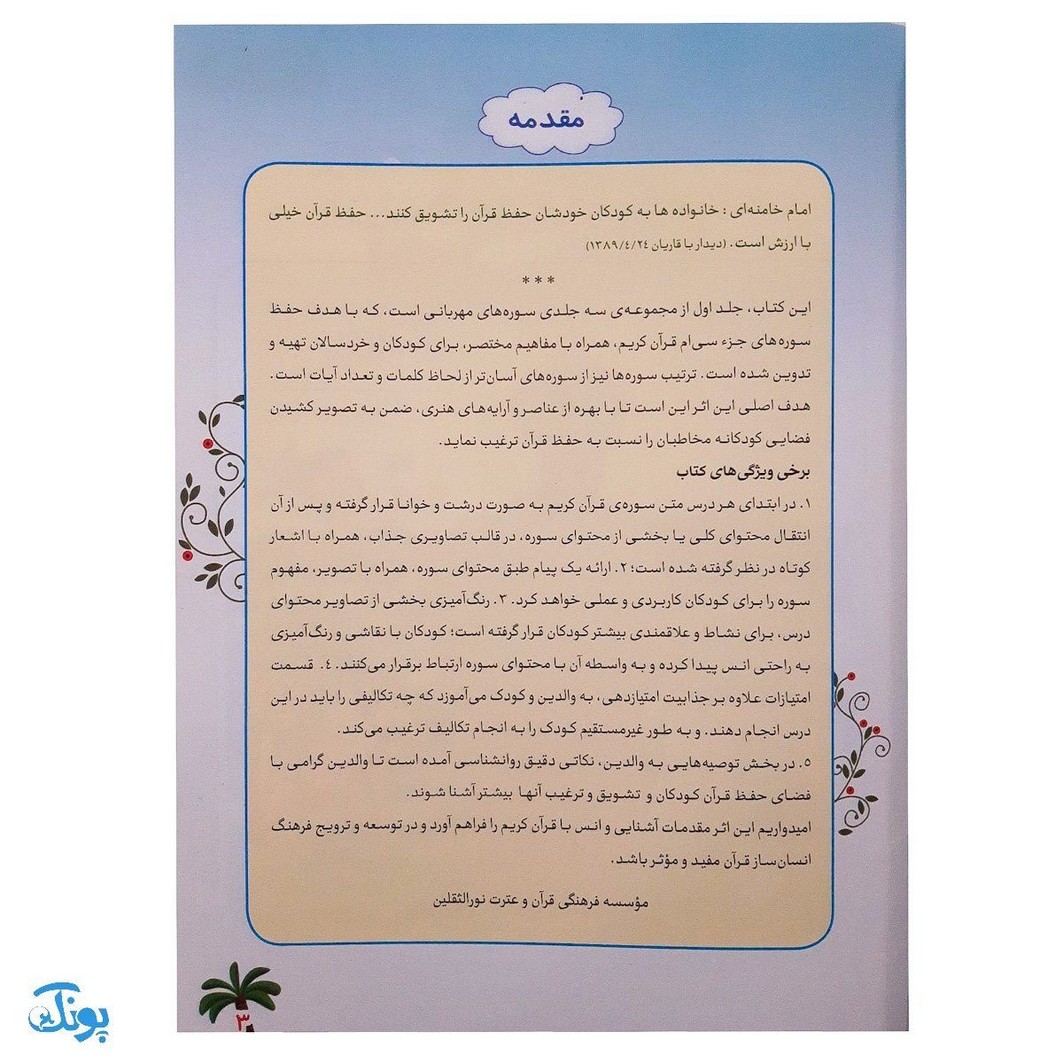 مقدمه
امام خامنه‌ای : خانواده ها به کودکان خودشان حفظ قرآن را تشویق کنند... حفظ قرآن خیلی
با ارزش است. (دیدار با قاریان ۱۳۸۹/۴/۲۴)
***
این کتاب، جلد اول از مجموعه‌ی سه جلدی سوره‌های مهربانی است، که با هدف حفظ
سوره‌های جزء سی‌ام قرآن کریم، همراه با مفاهیم مختصر، برای کودکان و خردسالان تهیه و
تدوین شده است. ترتیب سوره‌ها نیز از سوره‌های آسان‌تر از لحاظ کلمات و تعداد آیات است.
هدف اصلی این اثر این است تا با بهره از عناصر و آرایه‌های هنری، ضمن به تصویر کشیدن
فضایی کودکانه مخاطبان را نسبت به حفظ قرآن ترغیب نماید.
برخی ویژگی‌های کتاب
۱. در ابتدای هر درس متن سوره‌ی قرآن کریم به صورت درشت و خوانا قرار گرفته و پس از آن
انتقال محتوای کلی یا بخشی از محتوای سوره، در قالب تصاویری جذاب، همراه با اشعار
کوتاه در نظر گرفته شده است؛ ۲. ارائه یک پیام طبق محتوای سوره، همراه با تصویر، مفهوم
سوره را برای کودکان کاربردی و عملی خواهد کرد. ۳. رنگ‌آمیزی بخشی از تصاویر محتوای
درس، برای نشاط و علاقمندی بیشتر کودکان قرار گرفته است؛ کودکان با نقاشی و رنگ‌آمیزی
به راحتی انس پیدا کرده و به واسطه آن با محتوای سوره ارتباط برقرار می‌کنند. ۴. قسمت
امتیازات علاوه بر جذابیت امتیازدهی، به والدین و کودک می‌آموزد که چه تکالیفی را باید در این
درس انجام دهند. و به طور غیرمستقیم کودک را به انجام تکالیف ترغیب می‌کند.
۵. در بخش توصیه‌هایی به والدین، نکاتی دقیق روانشناسی آمده است تا والدین گرامی با
فضای حفظ قرآن کودکان و تشویق و ترغیب آنها بیشتر آشنا شوند.
امیدواریم این اثر مقدمات آشنایی و انس با قرآن کریم را فراهم آورد و در توسعه و ترویج فرهنگ
انسان‌ساز قرآن مفید و مؤثر باشد.
مؤسسه فرهنگی قرآن و عترت نورالثقلین
۳
پونک